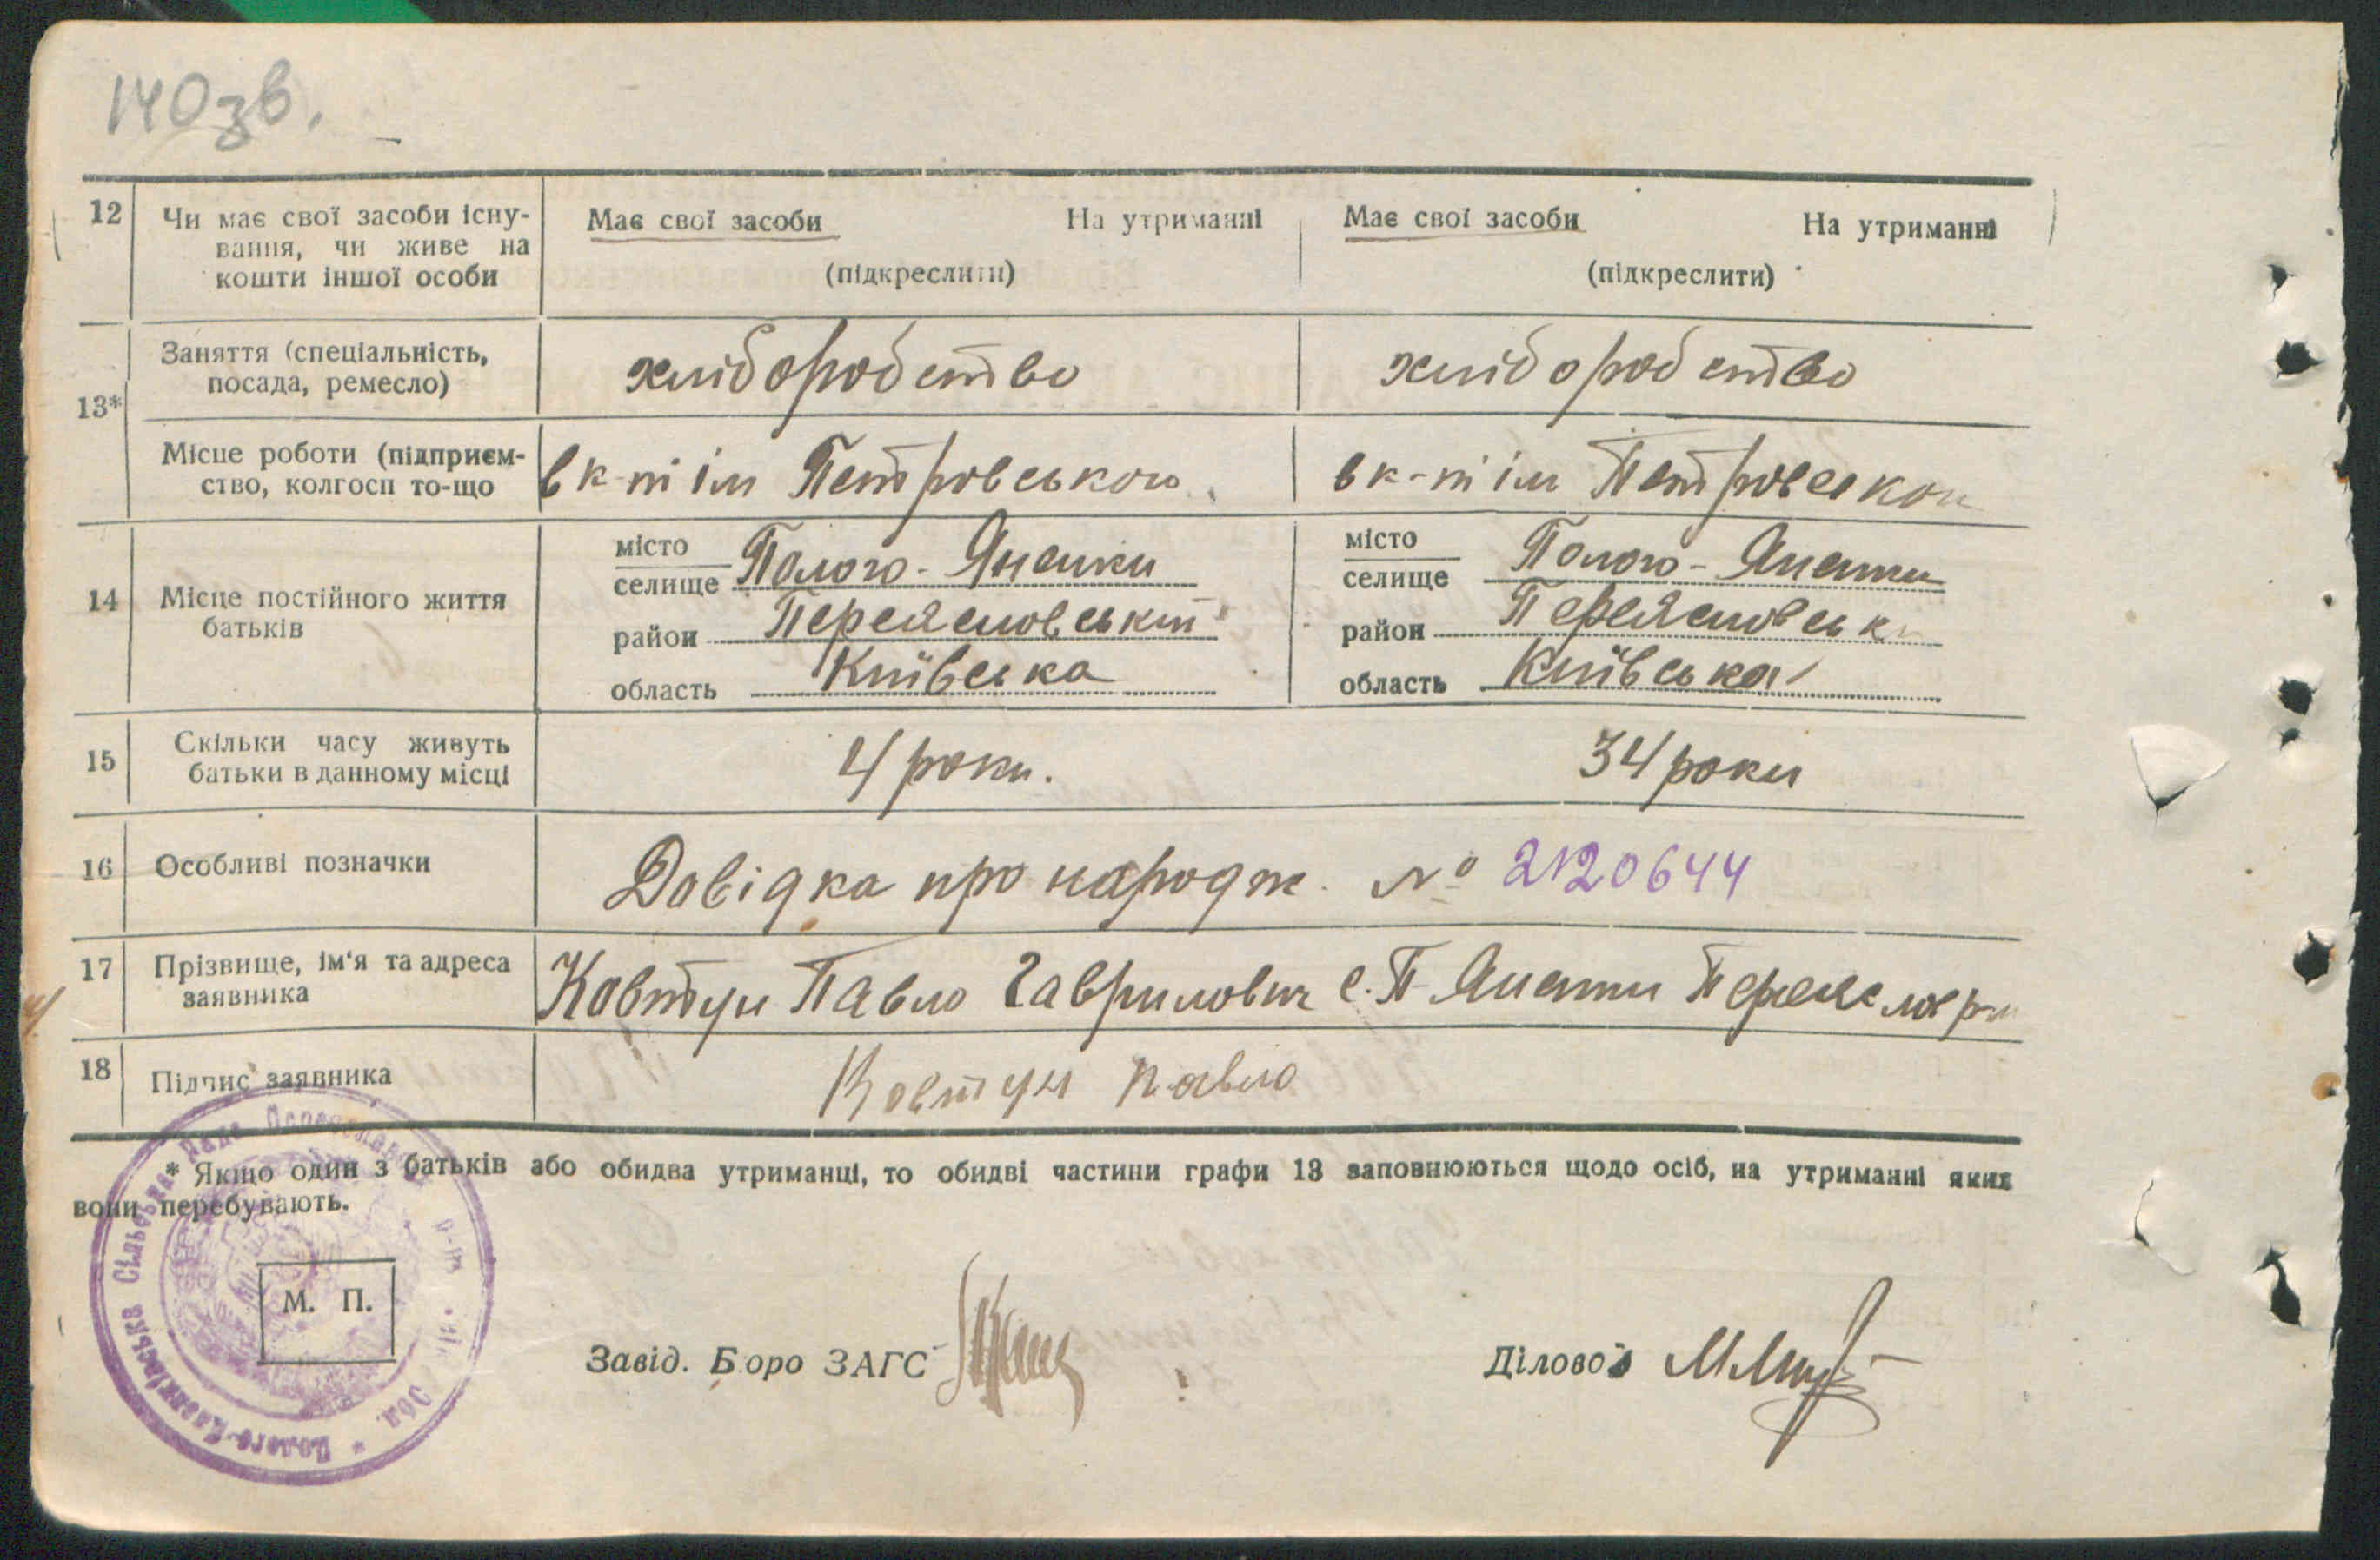 140 зв.
12 Чи має свої засоби існу- Має свої засоби На утриманні Має свої засоби На утриманні
вання, чи живе на
кошти іншої особи (підкреслити) (підкреслити)
13* Заняття (спеціальність, хліборобство хліборобство
посада, ремесло)
Місце роботи (підприєм- в к-пі ім Петровського в к-пі ім Петровсько
ство, колгосп то-що
14 Місце постійного життя батьків
місто Полого-Яненки місто Полого-Яненки
селище селище
район Переяславський район Переяславськ
область Київська область Київська
15 Скільки часу живуть 4 роки. 34 роки
батьки в данному місці
16 Особливі позначки Довідка про народж. № 2120644
17 Прізвище, ім'я та адреса Ковтун Павло Гаврилович с. П-Яненки Переяслов р-н
заявника
18 Підпис заявника Ковтун Павло
* Якщо один з батьків або обидва утриманці, то обидві частини графи 13 заповнюються щодо осіб, на утриманні яких
вони перебувають.
М. П.
Завід. Бюро ЗАГС Діловод
Сільська Рада Обл.